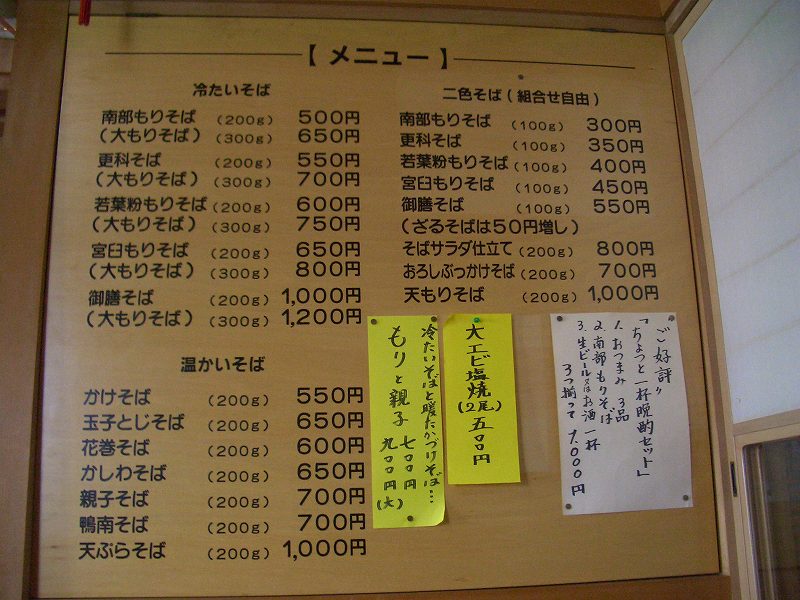 【 メニュー 】
冷たいそば
南部もりそば (200g) 500円
(大もりそば) (300g) 650円
更科そば (200g) 550円
(大もりそば) (300g) 700円
若葉粉もりそば (200g) 600円
(大もりそば) (300g) 750円
宮臼もりそば (200g) 650円
(大もりそば) (300g) 800円
御膳そば (200g) 1,000円
(大もりそば) (300g) 1,200円
温かいそば
かけそば (200g) 550円
玉子とじそば (200g) 650円
花巻そば (200g) 600円
かしわそば (200g) 650円
親子そば (200g) 700円
鴨南そば (200g) 700円
天ぷらそば (200g) 1,000円
二色そば(組合せ自由)
南部もりそば (100g) 300円
更科そば (100g) 350円
若葉粉もりそば (100g) 400円
宮臼もりそば (100g) 450円
御膳そば (100g) 550円
(ざるそばは50円増し)
そばサラダ仕立て (200g) 800円
おろしぶっかけそば (200g) 700円
天もりそば (200g) 1,000円
冷たいそばと暖たかづけそば…
もりと親子 七〇〇円
九〇〇円(大)
大エビ塩焼(2尾)五〇〇円
ご好評〃
「ちょっと一杯晩酌セット」
1. おつまみ 3品
2. 南部もりそば
3. 生ビール又はお酒一杯
3つ揃って 1,000円